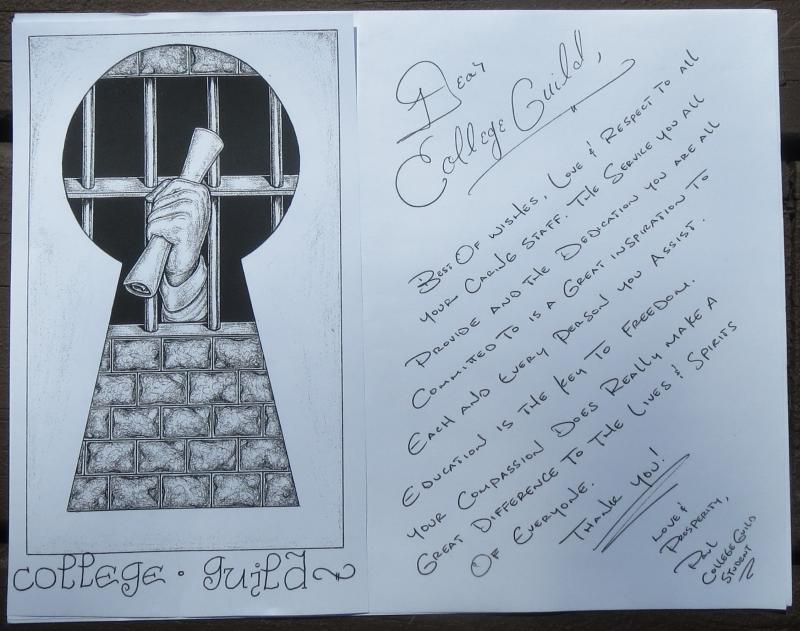 College · Guild
Dear
College Guild,
Best Of Wishes, Love & Respect To All
Your Caring Staff. The Service You All
Provide And The Dedication You Are All
Committed To Is A Great Inspiration To
Each And Every Person You Assist.
Education Is The Key To Freedom.
Your Compassion Does Really Make A
Great Difference To The Lives & Spirits
Of Everyone.
Thank You!
Love &
Prosperity,
Paul
College Guild
Student